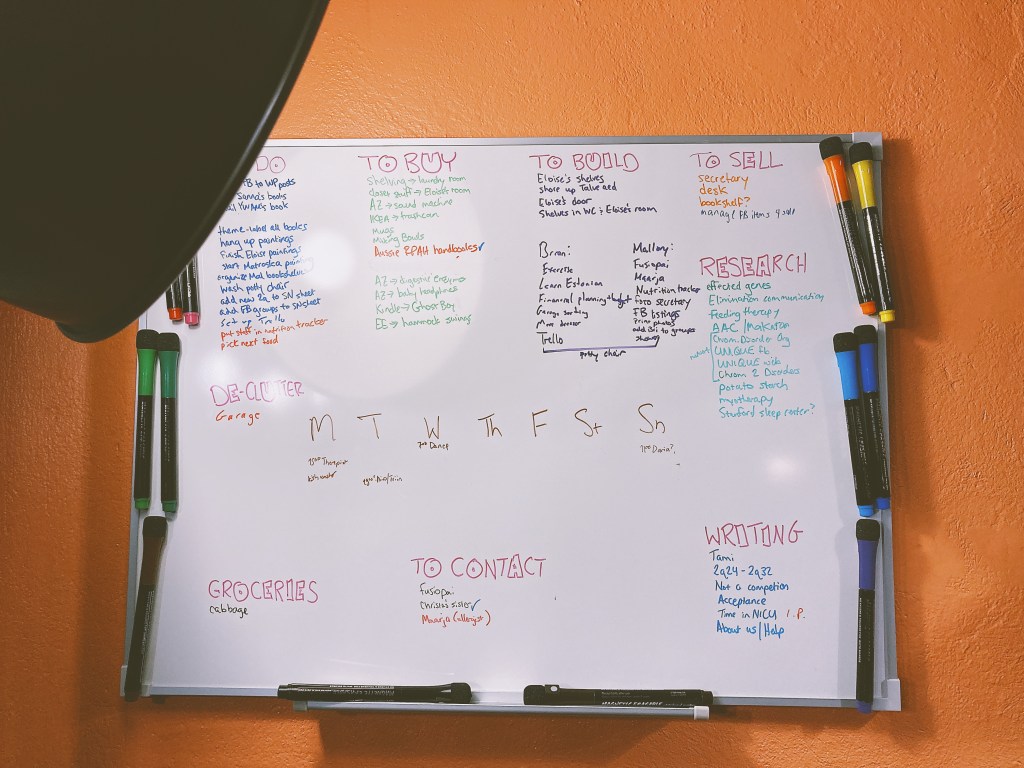 DO
TO BUY
TO BUILD
TO SELL
FB to WP posts
books
book
theme-label all bodies
hang up paintings
Finish Eloise paintings
start Matroska
organize Med bookshelves
wash potty chair
add new 2q to SN sheet
add FB groups to SN sheet
set up Trello
put stuff in nutrition tracker
pick next food
shelving → laundry room
closet stuff → Eloise's room
AZ → sound machine
IKEA → trashcan
mugs
Mixing Bowls
Aussie RPAH handbooks ✓
AZ → digestive enzymes
AZ → baby headphones
Kindle →
ES → hammock swings
Eloise's shelves
shore up Talve aed
Eloise's door
Shelves in WC + Eloise's room
Brian:
Exercise
Learn Estonian
Financial planning + budget
Garage sorting
Move dresser
Trello
Mallory:
Fusiopai
Maarja
Nutrition tracker
foto secretary
FB listings
Print photos
add Bri to groups
potty chair
secretary
desk
bookshelf?
manage FB items 4 sale
RESEARCH
effected genes
Elimination communication
feeding therapy
AAC / Makaton
Chrom. Disorder Org
UNIQUE fb
UNIQUE web
Chrom 2 Disorders
potato starch
myotherapy
Stanford sleep center?
DE-CLUTTER
Garage
M T W Th F St Sn
7:00 Dance
GROCERIES
cabbage
TO CONTACT
Fusiopai
Christa's sister ✓
Maarja (allergist)
WRITING
Tami
2q24 - 2q32
Not a competion
Acceptance
Time in NICU I.P.
About us / Help